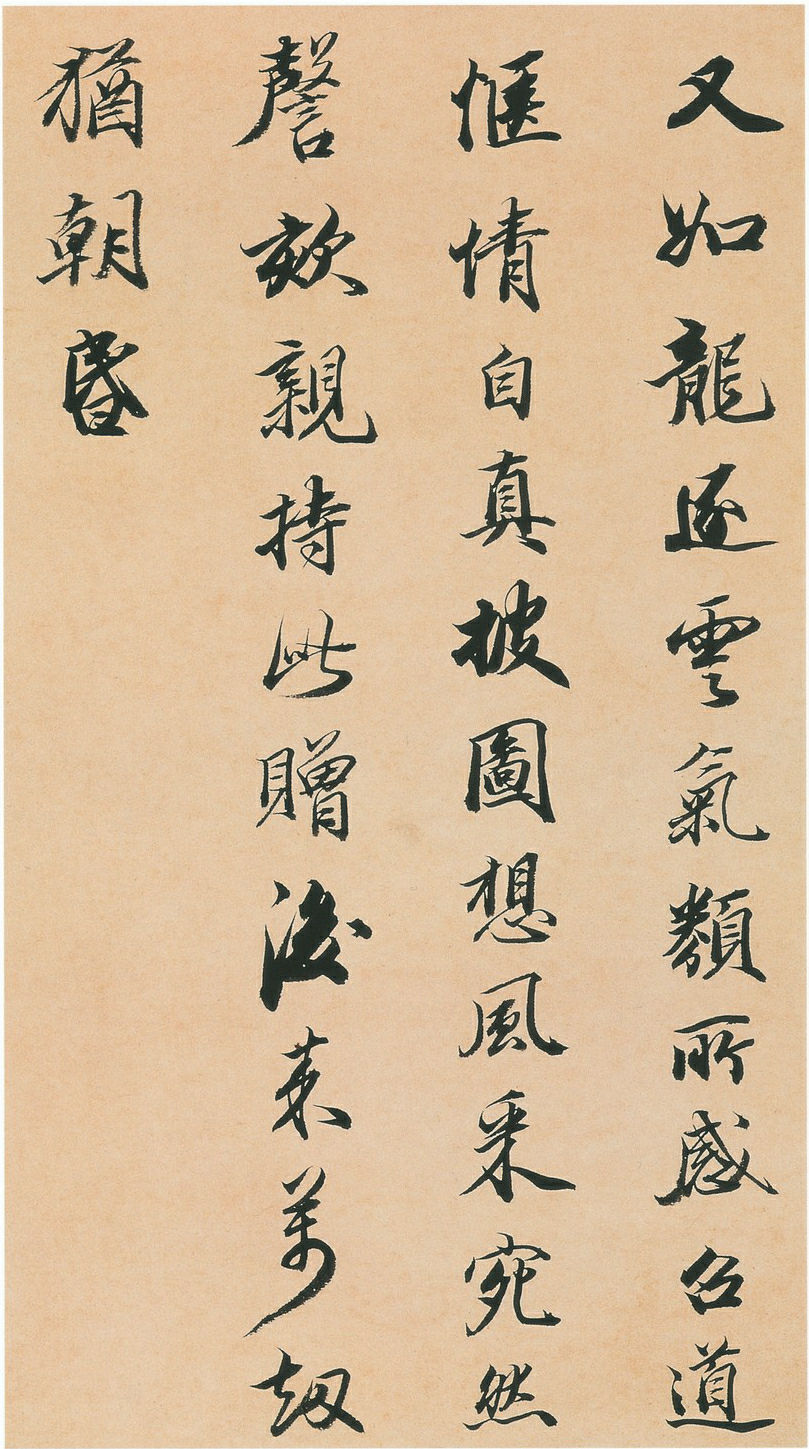 又如龍逐雲氣類所感召道
愜情自真披圖想風采宛然
謦欬親持此贈後來萬劫
猶朝昏